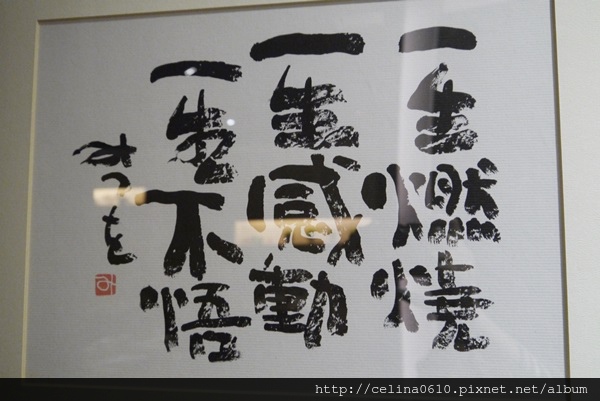 一生燃燒
一生感動
一生不悟
みつを
http://celina0610.pixnet.net/album